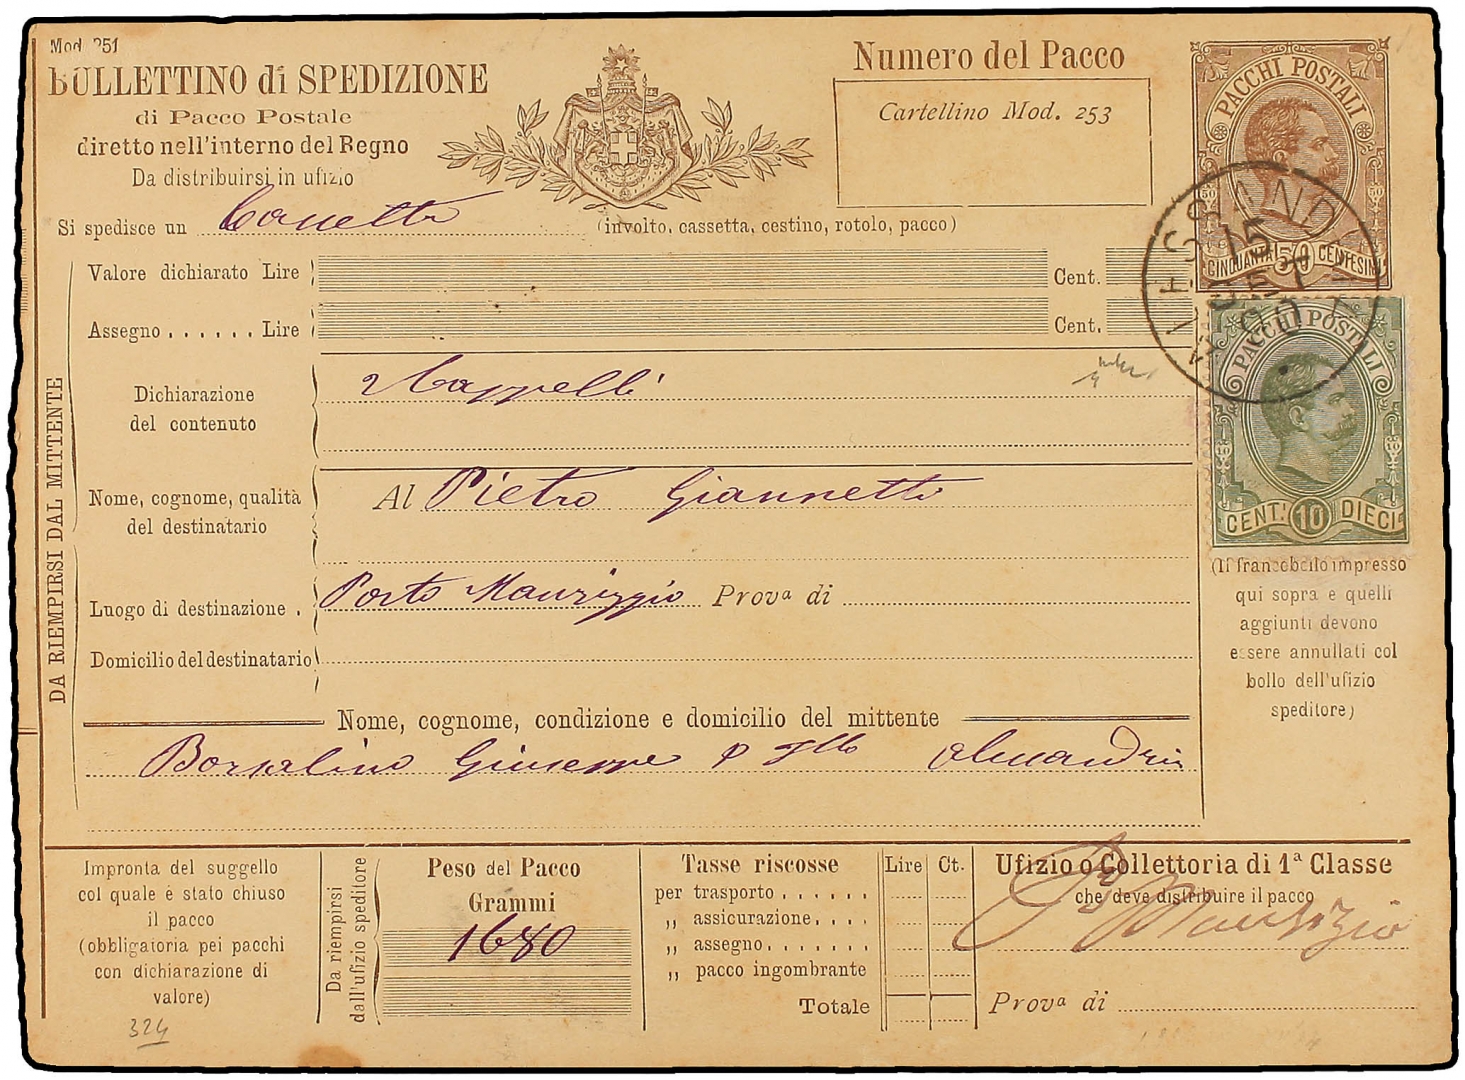 Mod. 251
BULLETTINO di SPEDIZIONE
di Pacco Postale
diretto nell'interno del Regno
Da distribuirsi in ufizio
Numero del Pacco
Cartellino Mod. 253
PACCHI POSTALI
50 50
CINQUANTA 50 CENTESIMI
ALESSANDRIA
15
90
Si spedisce un (involto, cassetta, cestino, rotolo, pacco)
Valore dichiarato Lire Cent.
Assegno...... Lire Cent.
PACCHI POSTALI
CENT. 10 DIECI
Dichiarazione
del contenuto
Cappelli
Nome, cognome, qualità
del destinatario
Al Pietro Giannetto
Luogo di destinazione . Porto Maurizzio Prova di
Domicilio del destinatario
DA RIEMPIRSI DAL MITTENTE
(Il francobollo impresso
qui sopra e quelli
aggiunti devono
essere annullati col
bollo dell'ufizio
speditore)
Nome, cognome, condizione e domicilio del mittente
Borsalino Giuseppe & Fllo Alessandria
Impronta del suggello
col quale è stato chiuso
il pacco
(obbligatoria pei pacchi
con dichiarazione di
valore)
324
Da riempirsi
dall'ufizio speditore
Peso del Pacco
Grammi
1680
Tasse riscosse Lire Ct.
per trasporto......
„ assicurazione....
„ assegno.......
„ pacco ingombrante
Totale
Ufizio o Collettoria di 1ª Classe
che deve distribuire il pacco
Po Maurizio
Prova di